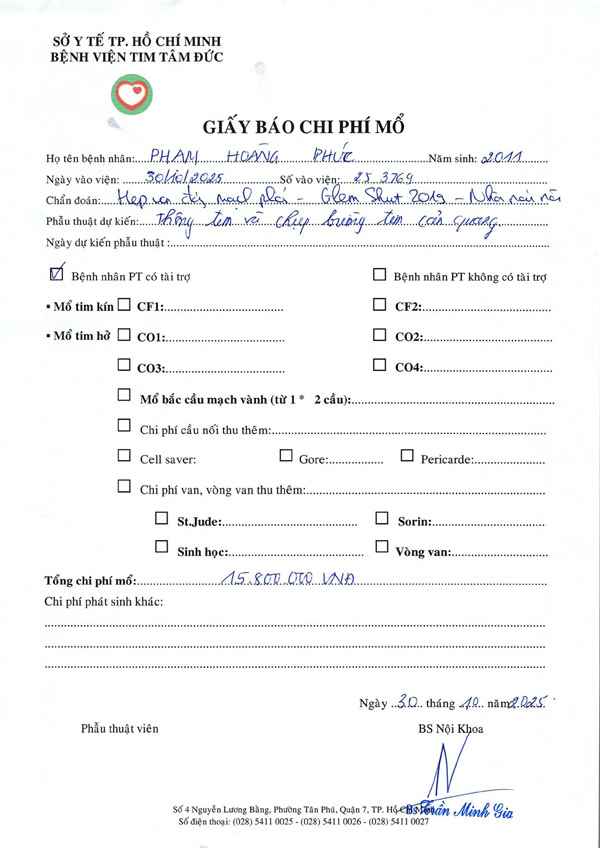 SỞ Y TẾ TP. HỒ CHÍ MINH
BỆNH VIỆN TIM TÂM ĐỨC
GIẤY BÁO CHI PHÍ MỔ
Họ tên bệnh nhân: PHẠM HOÀNG PHÚC Năm sinh: 2011
Ngày vào viện: 30/10/2025 Số vào viện: 25.3769
Chẩn đoán: Hẹp van ĐM mạch phổi - Glenn Shunt 2019 - Nhồi máu não
Phẫu thuật dự kiến: Thông tim và chụp buồng tim cản quang
Ngày dự kiến phẫu thuật :
Bệnh nhân PT có tài trợ Bệnh nhân PT không có tài trợ
▪ Mổ tim kín CF1: CF2:
▪ Mổ tim hở CO1: CO2:
CO3: CO4:
Mổ bắc cầu mạch vành (từ 1 * 2 cầu):
Chi phí cầu nối thu thêm:
Cell saver: Gore: Pericarde:
Chi phí van, vòng van thu thêm:
St.Jude: Sorin:
Sinh học: Vòng van:
Tổng chi phí mổ: 15.800.000 VNĐ
Chi phí phát sinh khác:
Ngày 30 tháng 10 năm 2025
Phẫu thuật viên BS Nội Khoa
BS Trần Minh Gia
Số 4 Nguyễn Lương Bằng, Phường Tân Phú, Quận 7, TP. Hồ Chí Minh
Số điện thoại: (028) 5411 0025 - (028) 5411 0026 - (028) 5411 0027